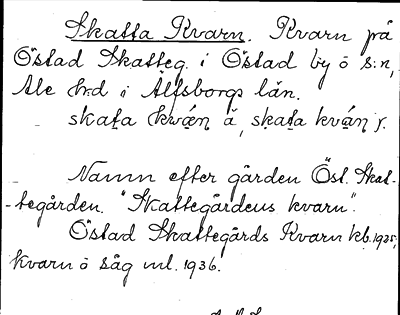 Skatta Kvarn. Kvarn på
Östad Skatteg. i Östad by o s:n,
Ale hrd i Älfsborgs län.
skata kván å, skata kván f.
Namn efter gården Öst. Skat-
-tegården. "Skattegårdens kvarn".
Östad Skattegårds Kvarn kb. 1925,
kvarn o såg ml. 1936.